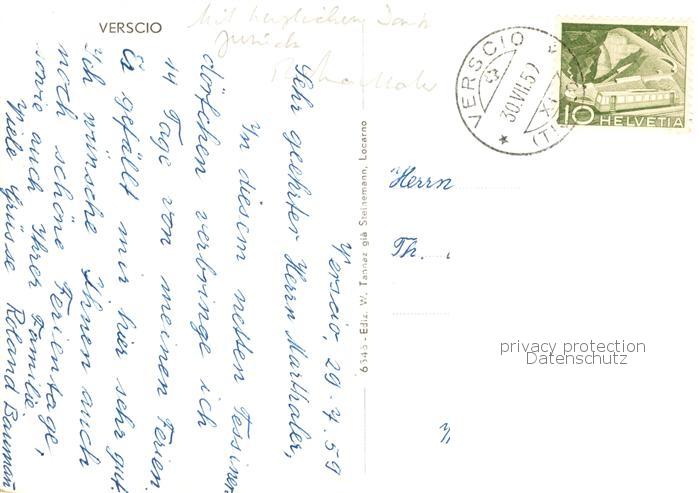 VERSCIO
Mit herzlichem Dank
zurück
Verscio, 29.7.59
Sehr geehrter Herr Marthaler,
In diesem netten Tessiner
dörfchen verbringe ich
14 Tage von meinen Ferien.
Es gefällt mir hier sehr gut.
Ich wünsche Ihnen auch
noch schöne Ferientage,
sowie auch Ihrer Familie.
Viele Grüsse Roland Baumann
6545 - Ediz. W. Tannaz già Steinemann, Locarno
VERSCIO
30.VII.59
(TICINO)
10 HELVETIA
Herrn
Th.
privacy protection
Datenschutz